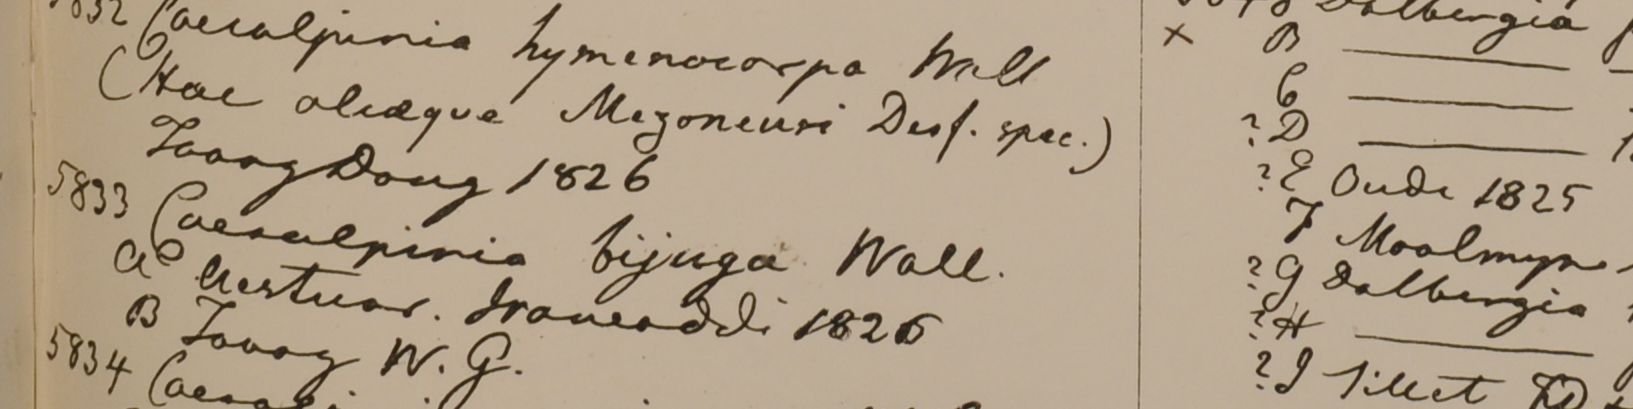 5832 Caesalpinia hymenocarpa Wall
(Hae aliæque Mezoneuri Desf. spec.)
Taong Dong 1826
5833 Caesalpinia bijuga Wall.
a Aestuar. Irawaddi 1826
B Tavoy W. G.
5834
Dalbergia
× B
C
? D
? E Oude 1825
F Moalmyne
? G Dalbergia
? H
? J Sillet